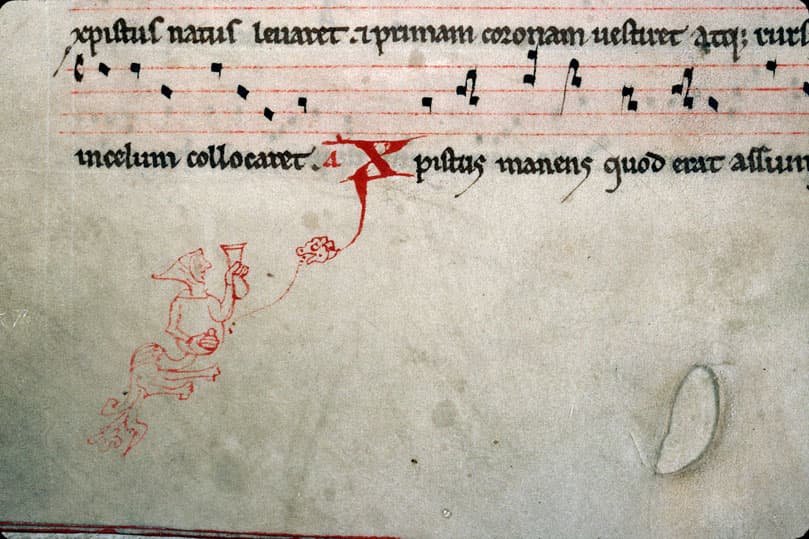 xpistus natus leuaret ⁊ primam coronam uestiret atq; rurs
incelum collocaret. a Xpistus manens quod erat assum